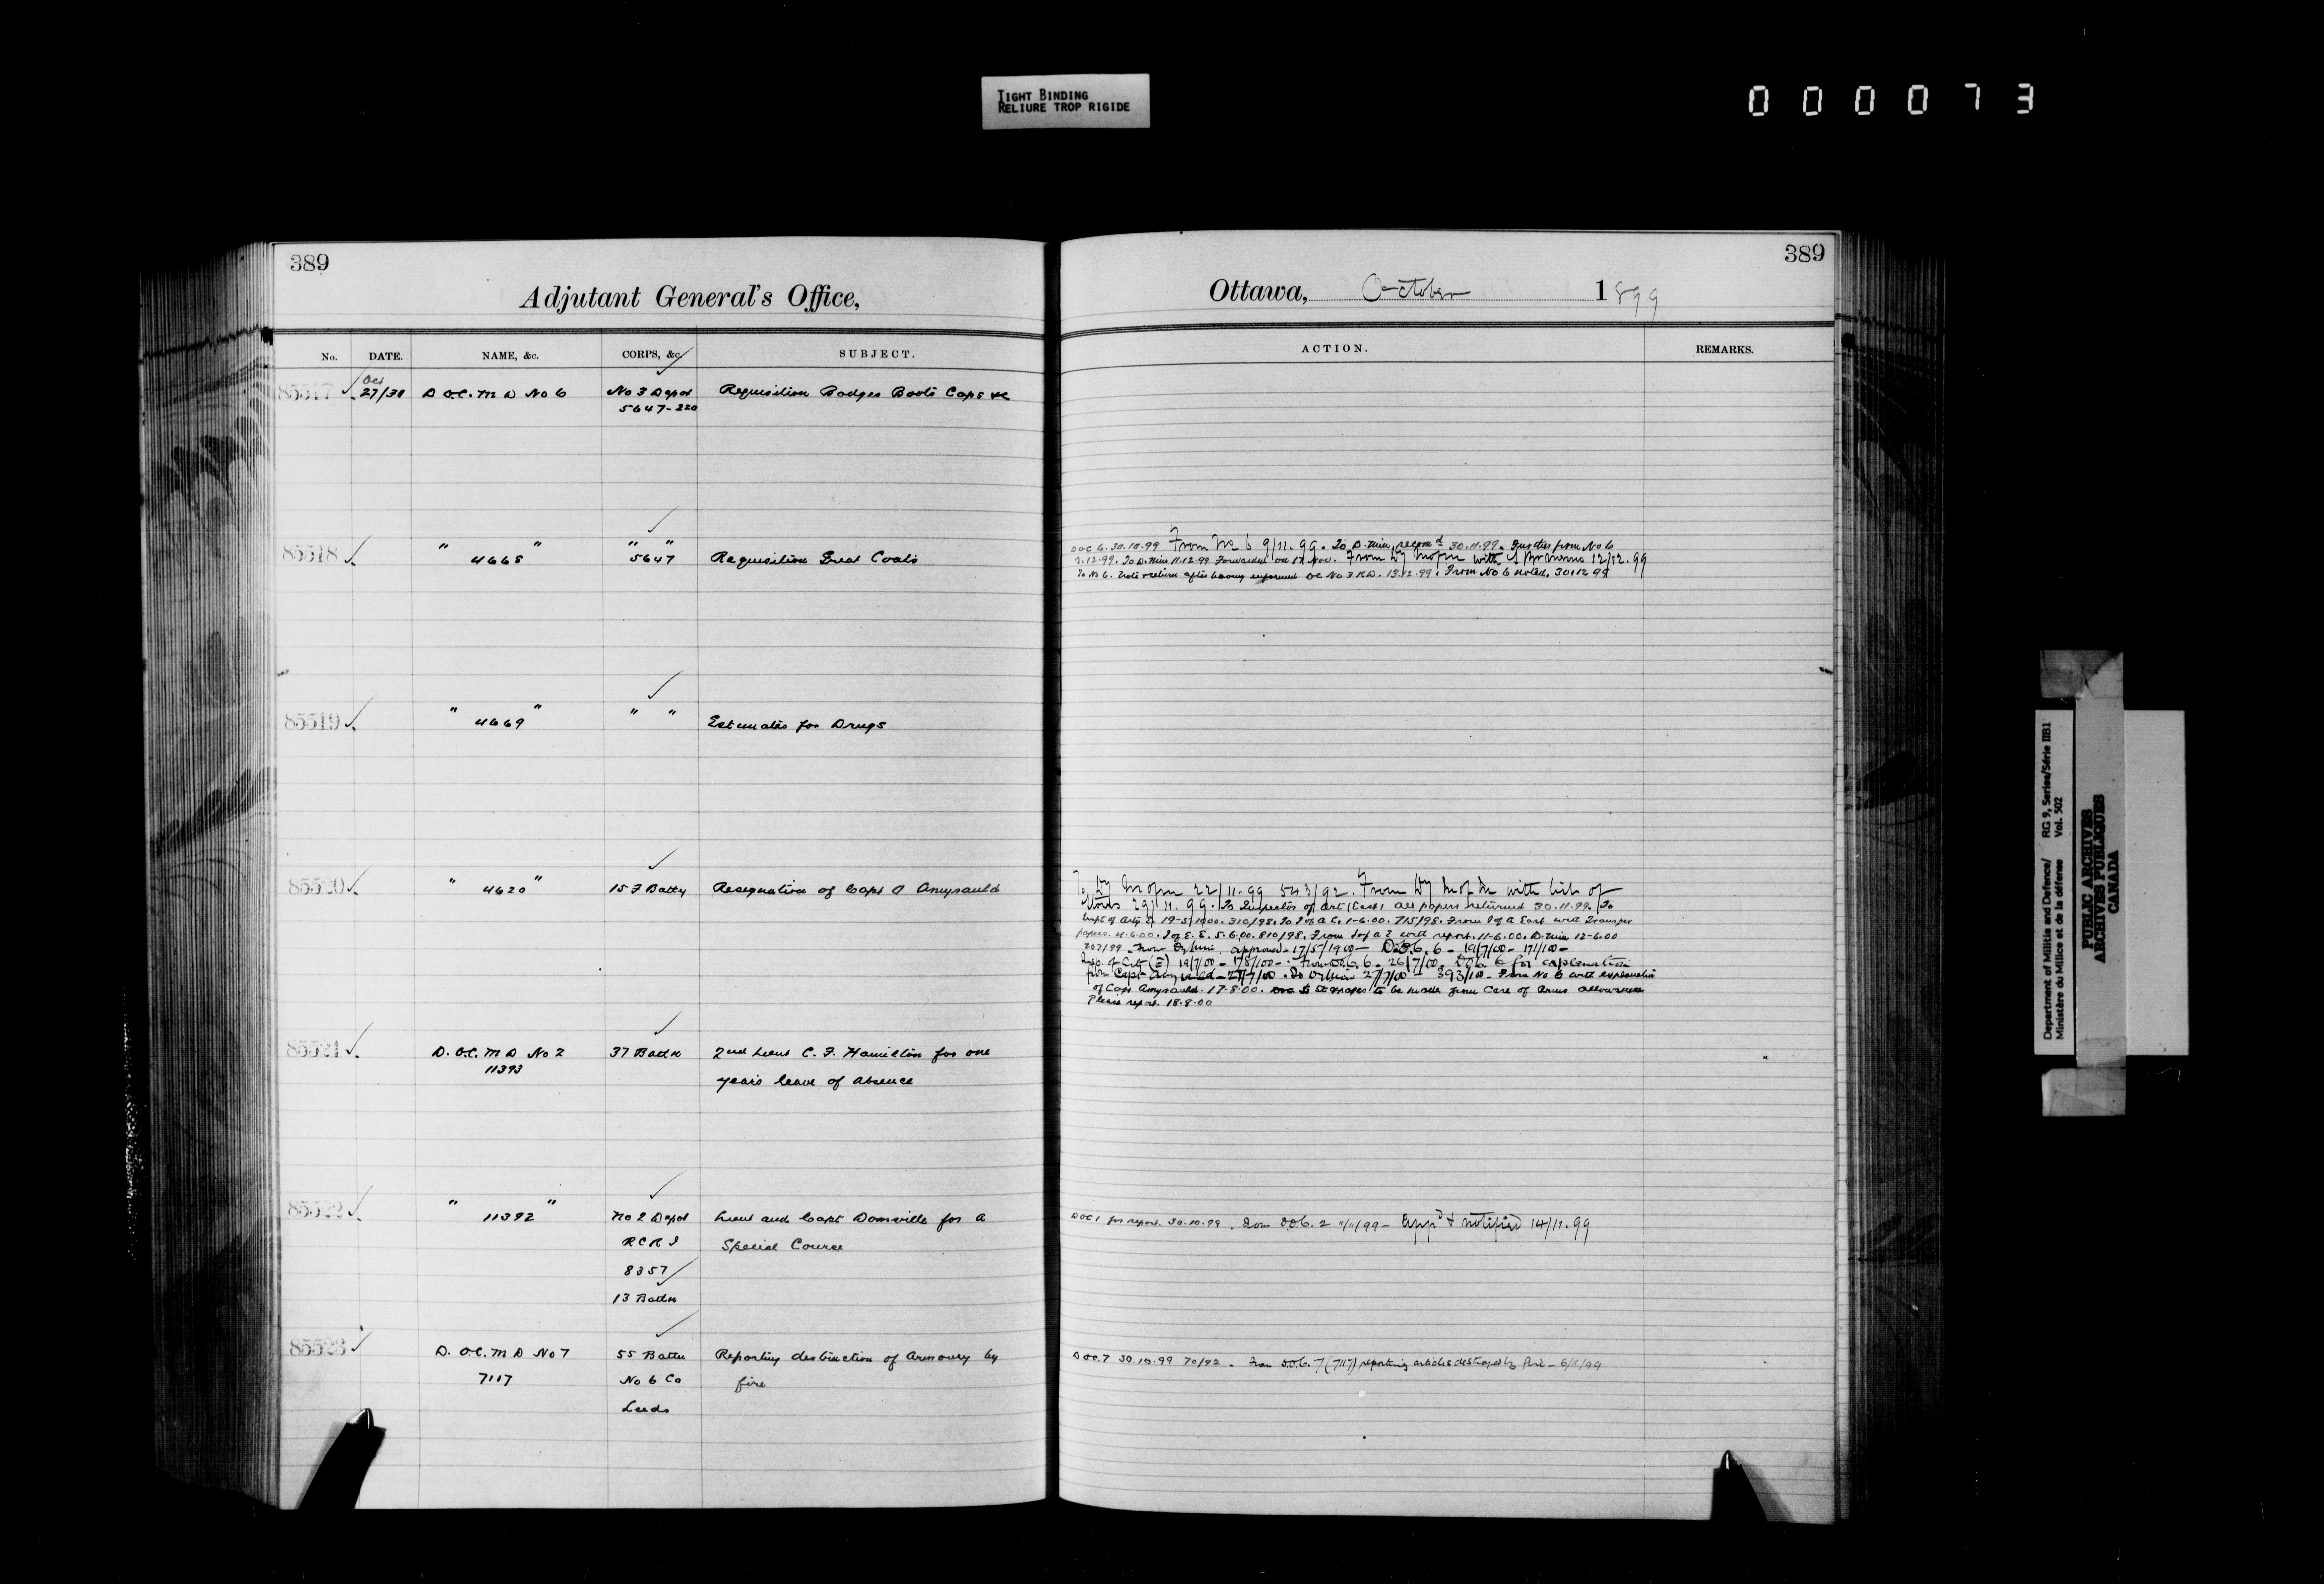 TIGHT BINDING
RELIURE TROP RIGIDE
000073
389
Adjutant General's Office,
No. DATE. NAME, &c. CORPS, &c. SUBJECT.
85517 Oct 27/30 D.O.C. M D No 6 No 3 Depot Requisition Badges Boots Caps &c
5647-220
85518 " 4668 " " " Requisition Great Coats
5647
85519 " 4669 " " " Estimates for Drugs
85520 " 4620 " 15 F Batty Resignation of Capt A Amyrauld
85521 D.O.C. M D No 2 37 Battn 2nd Lieut C. F. Hamilton for one
11393 years leave of absence
85522 " 11392 " No 2 Depot Lieut and Capt Domville for a
RCRI Special Course
8357
13 Battn
85523 D.O.C. M D No 7 55 Battn Reporting destruction of Armoury by
7117 No 6 Co fire
Leeds
389
Ottawa, October 1899
ACTION. REMARKS.
DOC 6. 30.10.99 From No 6 9/11.99. To D. Min. recomd 30.11.99. from No 6
.12.99. To D. Min 11.12.99 Forwarded on From Dy M of M with 12/12.99
To No 6. Note & return after having informed OC No 3 R.D. 13.12.99. From No 6 noted. 30.12.99
To Dy M of M 22/11.99 543/92. From Dy M of M with list of
Stores 29/11.99. To Inspector of Art (East) all papers returned 30.11.99. To
Inspt of Arty E 19-5-1900. 310/98. To I of A E. 1-6.00. 715/98. From I of A East with Transfer
papers. 4.6.00. I of E. E. 5.6.00. 810/98. From I of A E with report. 11-6.00. D. Min 12-6.00
From Dy Min. approved 17/5/1900 - D.O.C. 6 - 19/7/00 - 171/00 -
Insp. of Art (E) 19/7/00 - From DOC 6 - 26/7/00. DOC 6 for explanation
from Capt Amyrauld - 27/7/00. To Dy Min 27/7/00 393/00 - From No 6 with explanation
of Capt Amyrauld. 17-8-00. to be made from Care of Arms allowance
Please report. 18-8-00
DOC 1 for report. 30.10.99. From D.O.C. 2 - appd & notified 14/11.99
DOC. 7 30.10.99 70/92. From D.O.C. 7 (7117) reporting articles destroyed by fire - 6/11/99
Department of Militia and Defence/ RG 9, Series/Série IIB1
Ministère du Milice et de la défense Vol. 502
PUBLIC ARCHIVES
ARCHIVES PUBLIQUES
CANADA